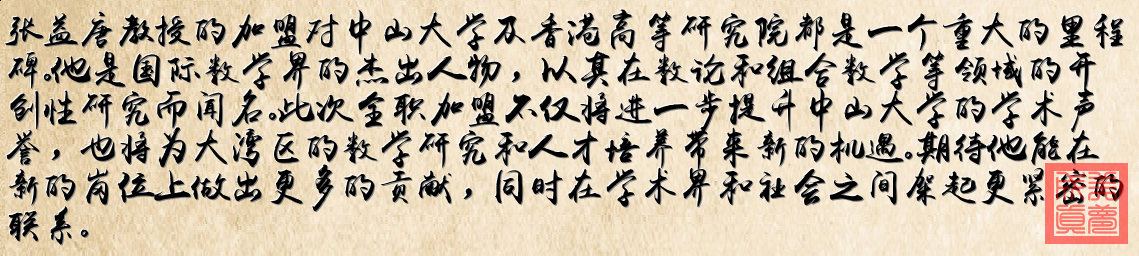 张益唐教授的加盟对中山大学及香港高等研究院都是一个重大的里程
碑。他是国际数学界的杰出人物，以其在数论和组合数学等领域的开
创性研究而闻名。此次全职加盟不仅将进一步提升中山大学的学术声
誉，也将为大湾区的数学研究和人才培养带来新的机遇。期待他能在
新的岗位上做出更多的贡献，同时在学术界和社会之间架起更紧密的
联系。